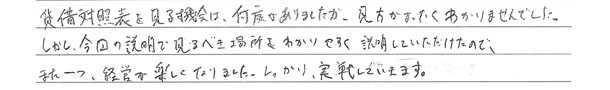 貸借対照表を見る機会は、何度かありましたが、見方がまったくわかりませんでした。
しかし、今回の説明で見るべき場所をわかりやすく説明していただけたので、
また一つ、経営が楽しくなりました。しっかり、実戦していきます。